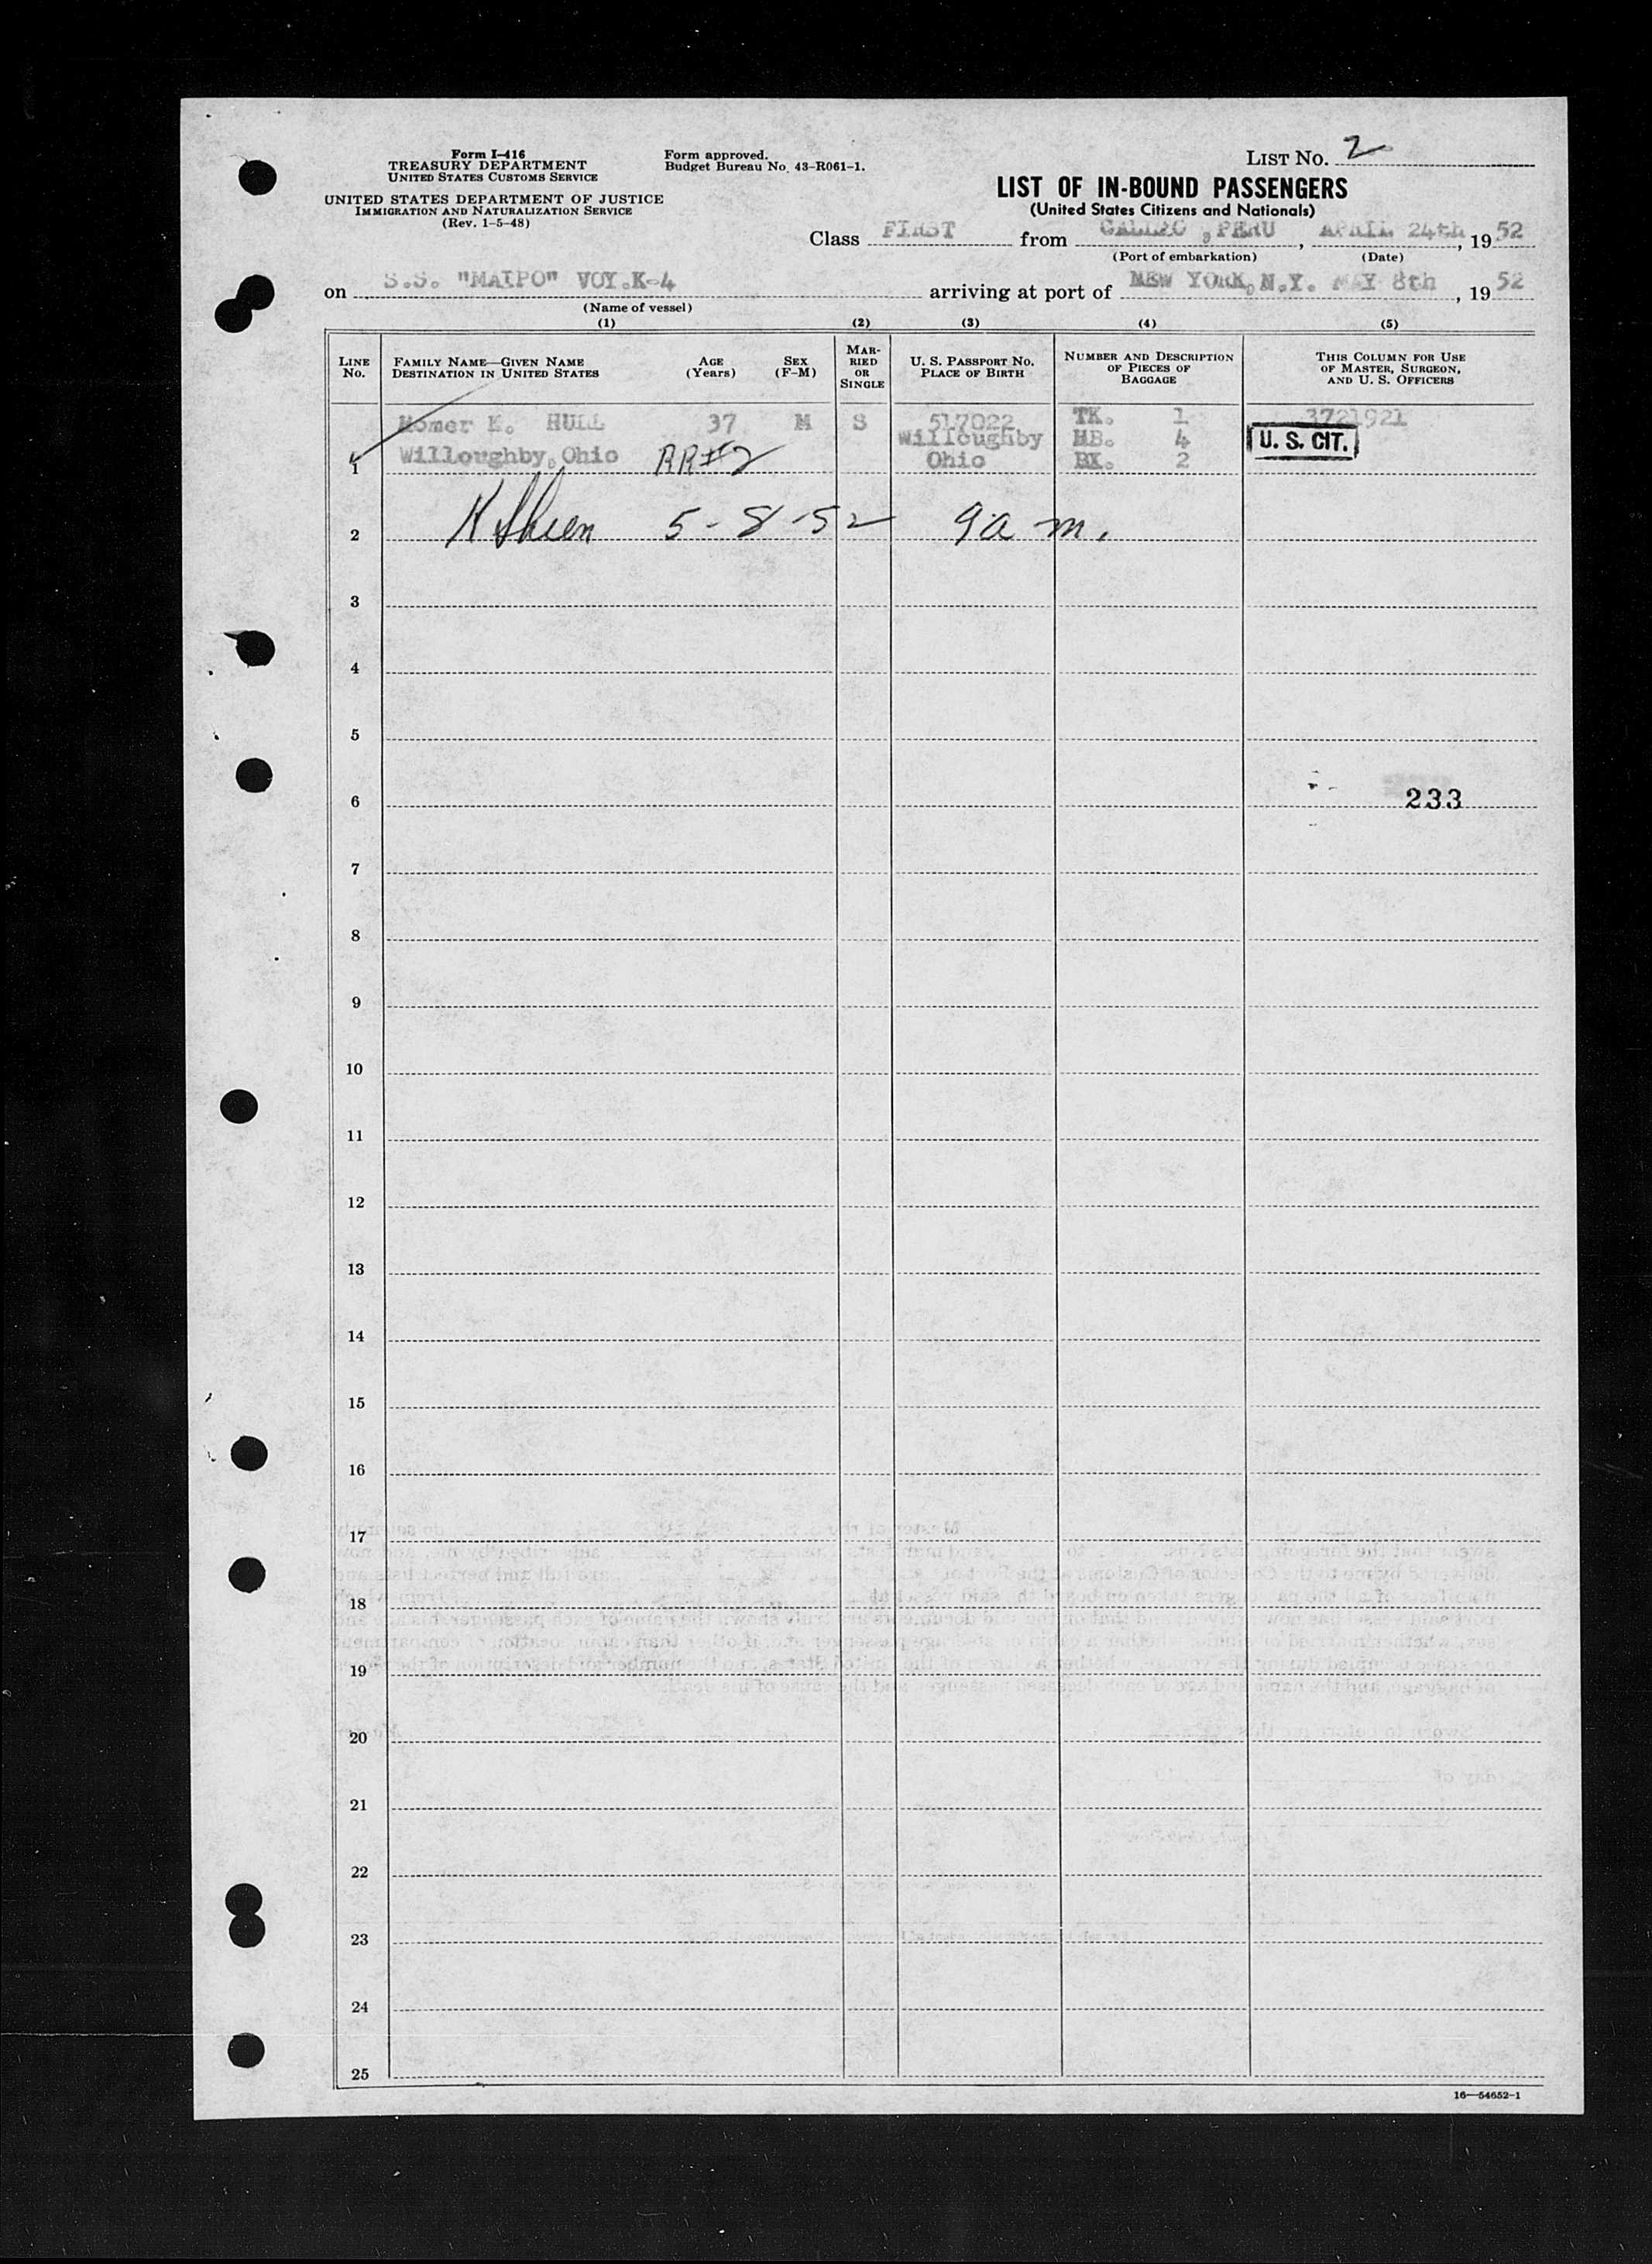 Form I-416
TREASURY DEPARTMENT
UNITED STATES CUSTOMS SERVICE
UNITED STATES DEPARTMENT OF JUSTICE
IMMIGRATION AND NATURALIZATION SERVICE
(Rev. 1-5-48)
Form approved.
Budget Bureau No. 43-R061-1.
LIST NO. 2
LIST OF IN-BOUND PASSENGERS
(United States Citizens and Nationals)
Class FIRST from CALLAO, PERU, APRIL 24th, 1952
(Port of embarkation) (Date)
on S.S. "MAIPO" VOY.K-4 arriving at port of NEW YORK, N.Y. MAY 8th, 1952
(Name of vessel)
(1) (2) (3) (4) (5)
LINE No. FAMILY NAME—GIVEN NAME DESTINATION IN UNITED STATES AGE (Years) SEX (F-M) MARRIED OR SINGLE U. S. PASSPORT NO. PLACE OF BIRTH NUMBER AND DESCRIPTION OF PIECES OF BAGGAGE THIS COLUMN FOR USE OF MASTER, SURGEON, AND U. S. OFFICERS
Homer K. HULL 37 M S 517022 TK. 1 3721921
Willoughby HB. 4 U. S. CIT.
1 Willoughby, Ohio RR#2 Ohio BX. 2
2 5-8-52 9 a m.
3
4
5
6 233
7
8
9
10
11
12
13
14
15
16
17
18
19
20
21
22
23
24
25
16—54652-1